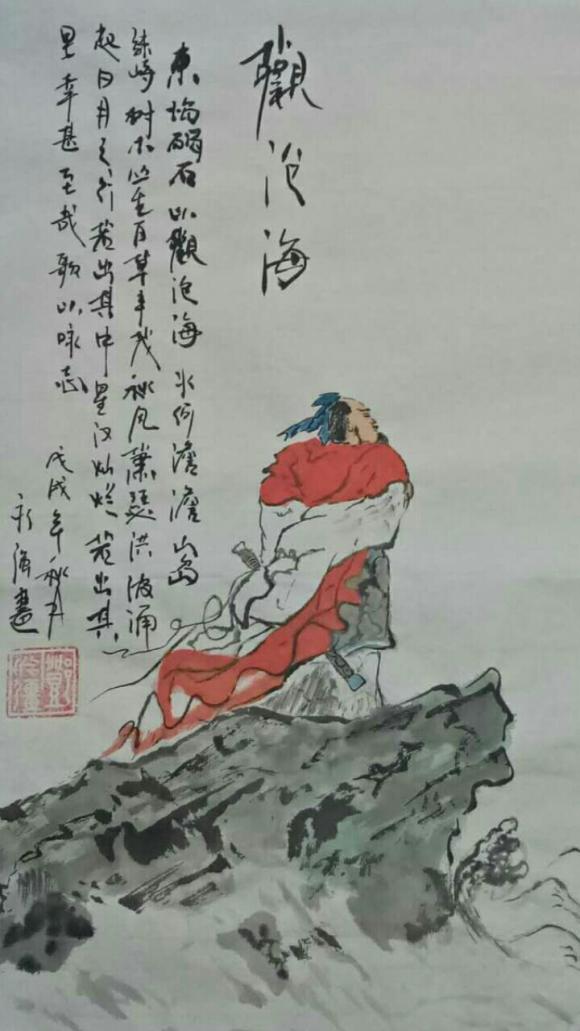 觀沧海
東临碣石以觀沧海水何澹澹山岛
竦峙树木丛生百草丰茂秋风萧瑟洪波涌
起日月之行若出其中星汉灿烂若出其
里幸甚至哉歌以咏志
戊戌年秋月
海画